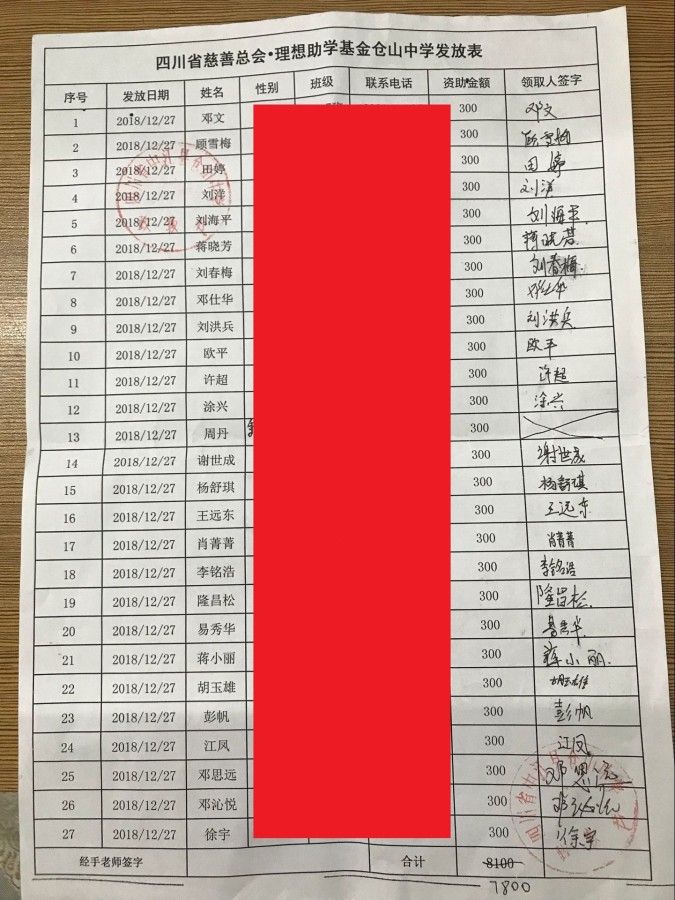 四川省慈善总会·理想助学基金仓山中学发放表
序号 发放日期 姓名 性别 班级 联系电话 资助金额 领取人签字
1 2018/12/27 邓文 300 邓文
2 2018/12/27 顾雪梅 300 顾雪梅
3 2018/12/27 田婷 300 田婷
4 2018/12/27 刘洋 300 刘洋
5 2018/12/27 刘海平 300 刘海平
6 2018/12/27 蒋晓芳 300 蒋晓芳
7 2018/12/27 刘春梅 300 刘春梅
8 2018/12/27 邓仕华 300 邓仕华
9 2018/12/27 刘洪兵 300 刘洪兵
10 2018/12/27 欧平 300 欧平
11 2018/12/27 许超 300 许超
12 2018/12/27 涂兴 300 涂兴
13 2018/12/27 周丹 300
14 2018/12/27 谢世成 300 谢世成
15 2018/12/27 杨舒琪 300 杨舒琪
16 2018/12/27 王远东 300 王远东
17 2018/12/27 肖菁菁 300 肖菁菁
18 2018/12/27 李铭浩 300 李铭浩
19 2018/12/27 隆昌松 300 隆昌松
20 2018/12/27 易秀华 300 易秀华
21 2018/12/27 蒋小丽 300 蒋小丽
22 2018/12/27 胡玉雄 300 胡玉雄
23 2018/12/27 彭帆 300 彭帆
24 2018/12/27 江凤 300 江凤
25 2018/12/27 邓思远 300 邓思远
26 2018/12/27 邓沁悦 300 邓沁悦
27 2018/12/27 徐宇 300 徐宇
经手老师签字 合计 8100
7800